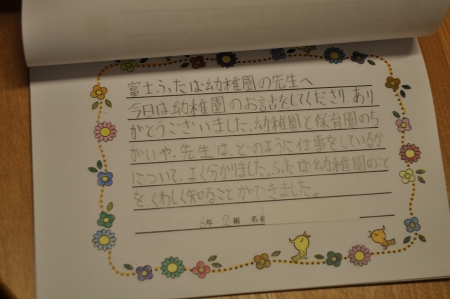 富士ふたば幼稚園の先生へ
今日は幼稚園のお話をしてくださり、あり
がとうございました。幼稚園と保育園のち
がいや、先生は、どのように仕事をしているか
について、よく分かりました。ふたば幼稚園のこと
を、くわしく知ることができました。
年 組 名前